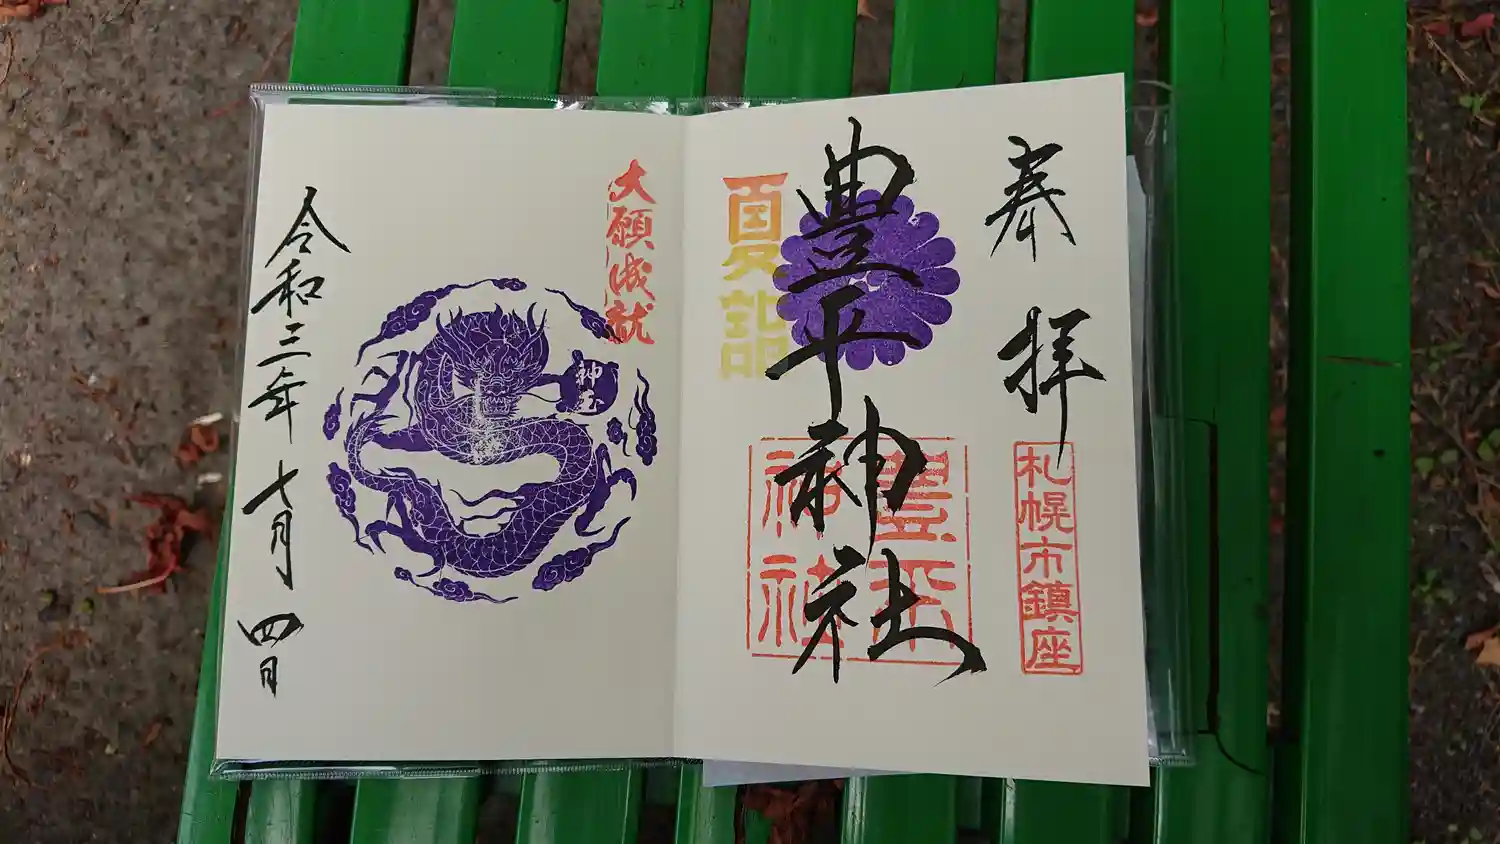 奉拝
札幌市鎮座
豊平神社
豊平
神社
夏詣
大願成就
神玉
令和三年七月四日